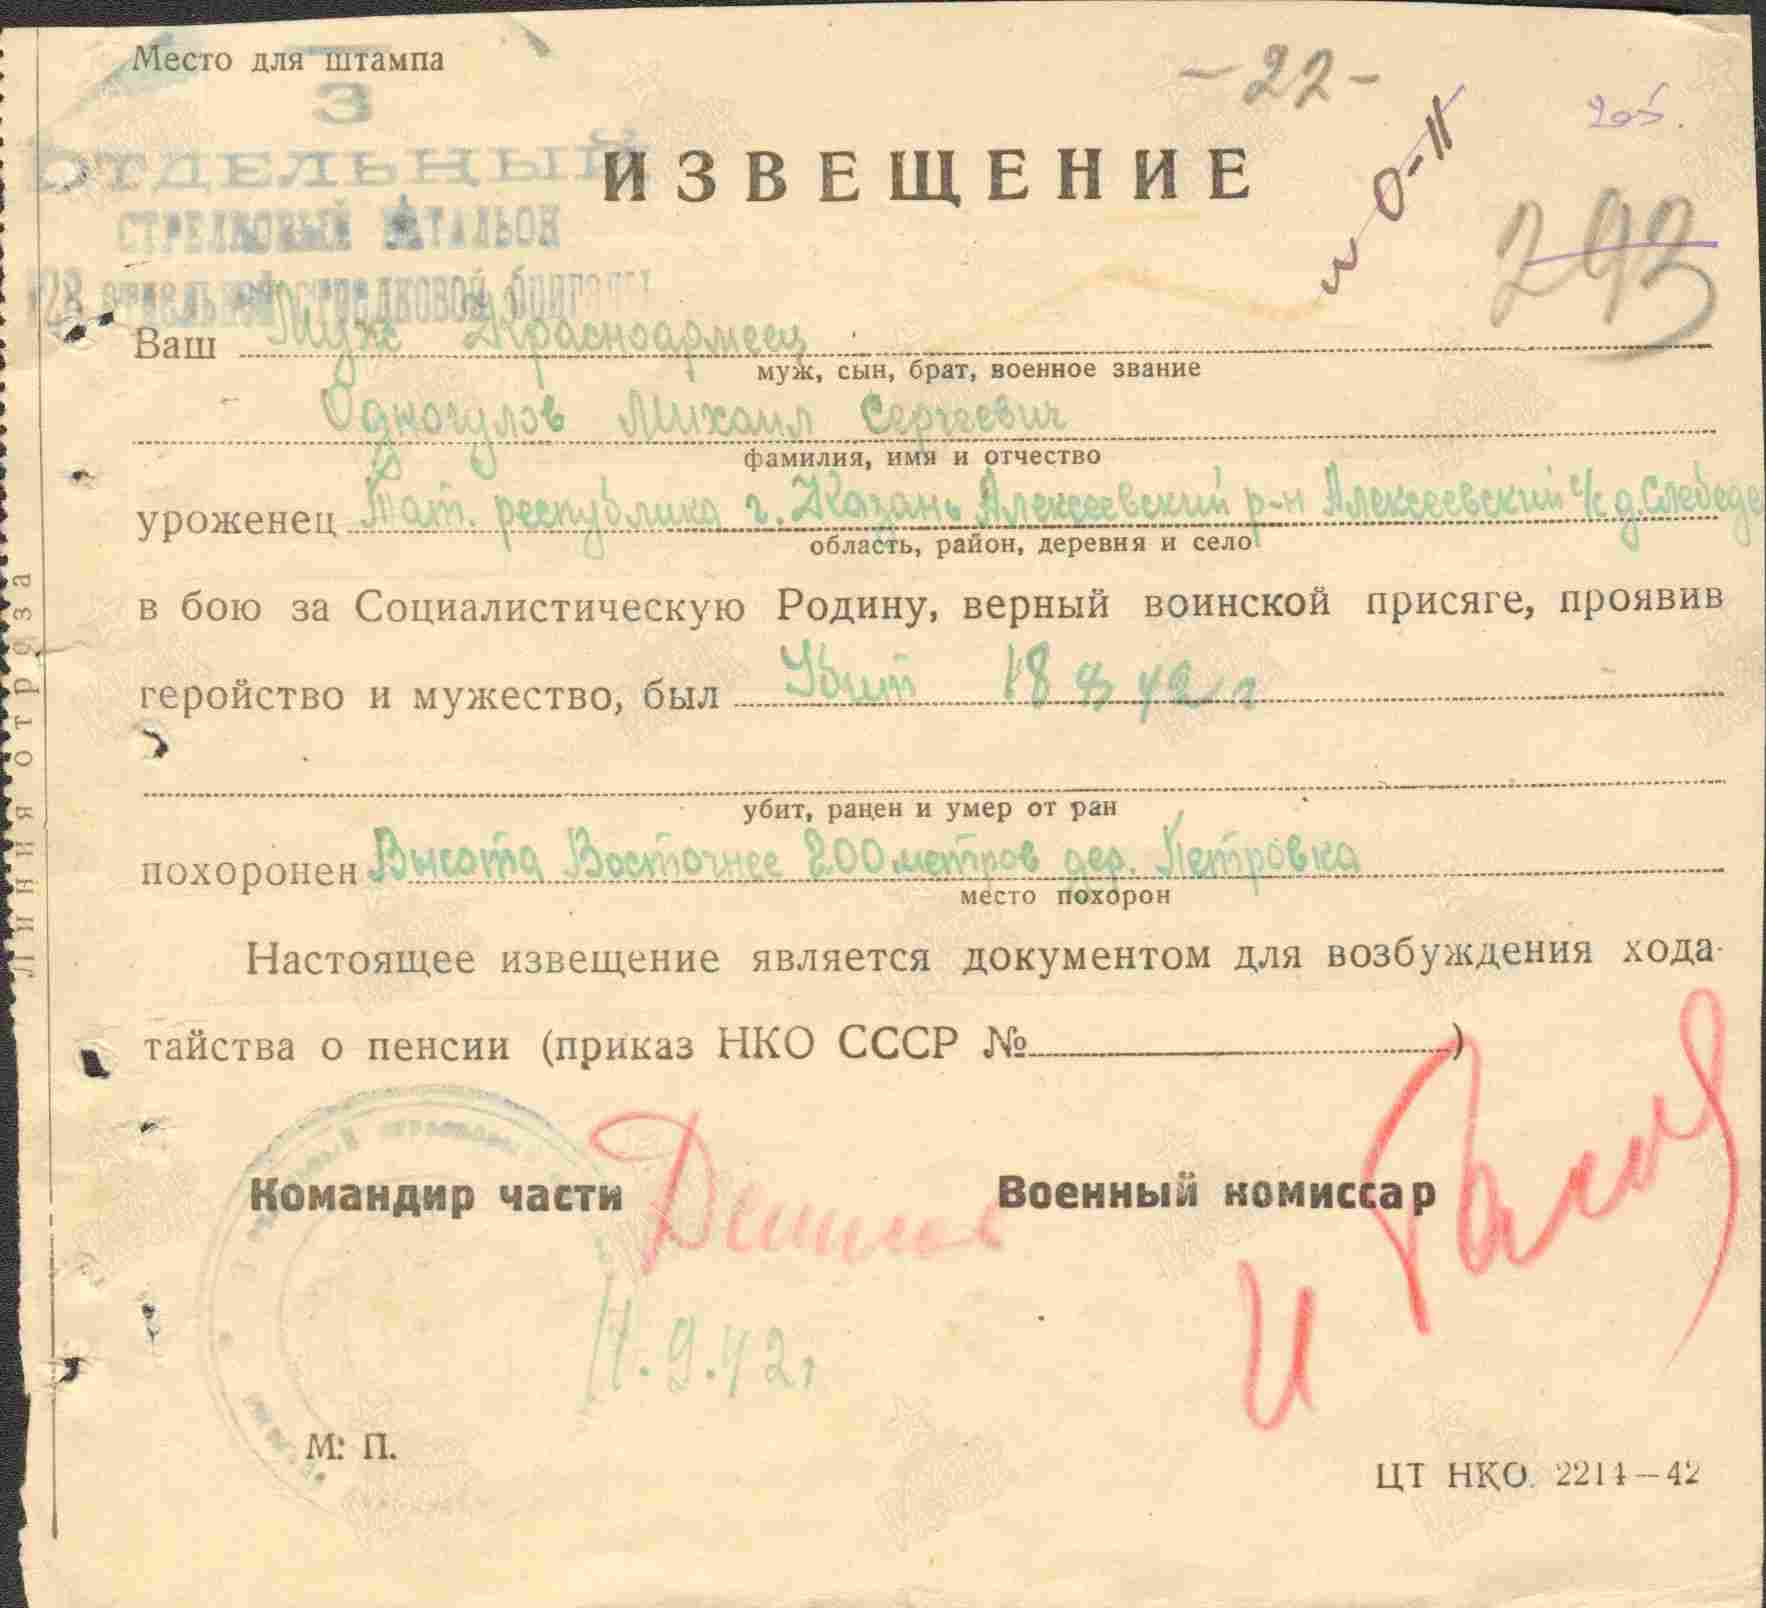 Место для штампа
- 22 -
205.
3
ОТДЕЛЬНЫЙ
ИЗВЕЩЕНИЕ
0-11
293
СТРЕЛКОВЫЙ БАТАЛЬОН
отдельной стрелковой бригады
Ваш Муж Красноармеец
муж, сын, брат, военное звание
Одногулов Михаил Сергеевич
фамилия, имя и отчество
уроженец Тат. республика г. Казань Алексеевский р-н Алексеевский с/с д.
область, район, деревня и село
в бою за Социалистическую Родину, верный воинской присяге, проявив
геройство и мужество, был Убит 18 8 42 г
убит, ранен и умер от ран
похоронен Высота Восточнее 200 метров дер. Петровка
место похорон
Настоящее извещение является документом для возбуждения хода-
тайства о пенсии (приказ НКО СССР № )
Командир части
Военный комиссар
11.9.42г
М. П.
ЦТ НКО. 2214—42
Линия отреза